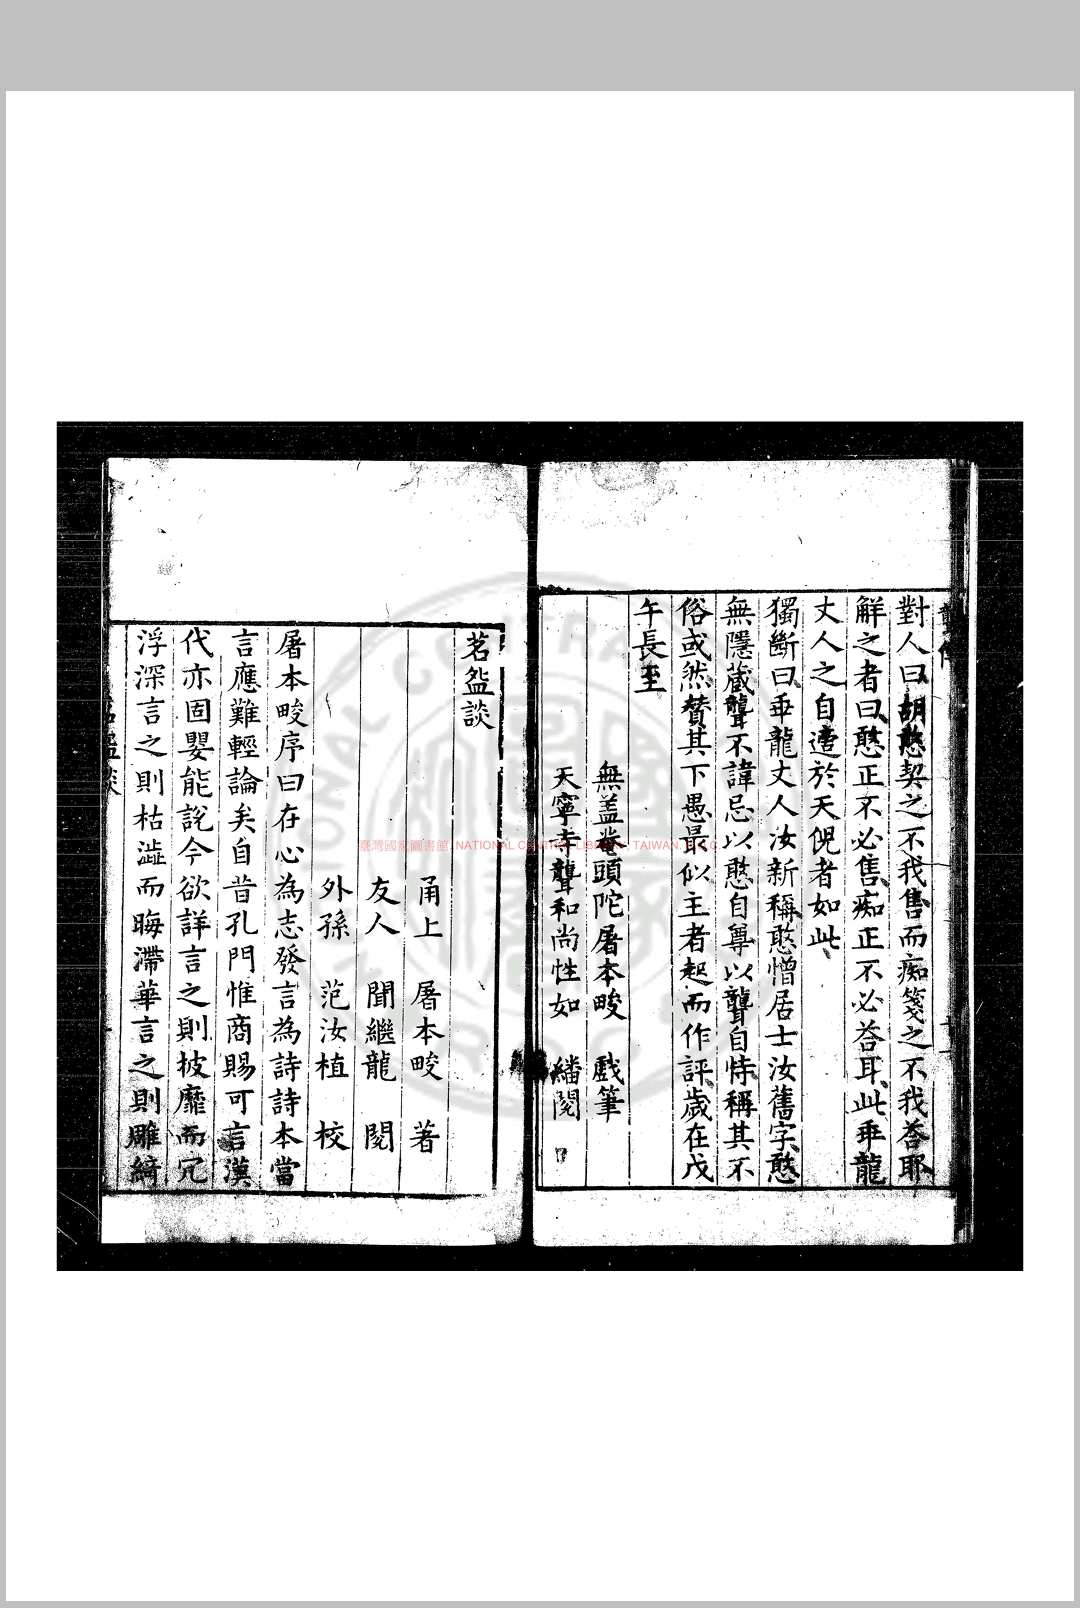 對人曰胡憨契之不我售而痴箋之不我荅耶
解之者曰憨正不必售痴正不必荅耳此垂龍
丈人之自遣於天倪者如此
獨斷曰垂龍丈人汝新稱憨憎居士汝舊字憨
無隱蔵聾不諱忌以憨自尊以聾自恃稱其不
俗或然贊其下愚最似主者起而作評歲在戊
午長至
無盖菴頭陀屠本畯 戲筆
天寧寺聾和尚性如 繙閱
臺灣國家圖書館 NATIONAL CENTRAL LIBRARY, TAIWAN, R.O.C
茗盌談
甬上 屠本畯 著
友人 聞繼龍 閱
外孫 范汝植 校
屠本畯序曰在心為志發言為詩詩本當
言應難輕論矣自昔孔門惟商賜可言漢
代亦固嬰能說今欲詳言之則披靡而冗
浮深言之則枯澁而晦滯華言之則雕綺